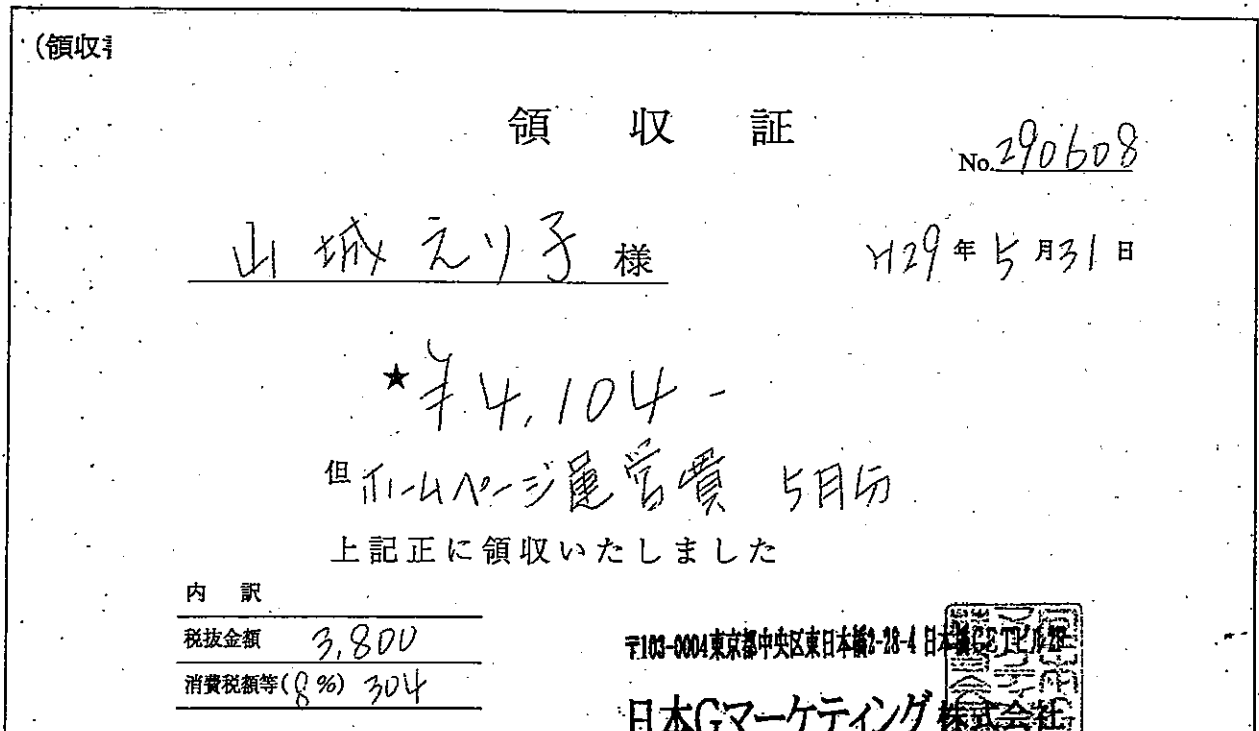 (領収
領収証
No.290608
山城えり子様
H29年5月31日
★¥4,104-
但ホームページ運営費 5月分
上記正に領収いたしました
内訳
税抜金額 3,800
消費税額等(8%) 304
〒103-0004東京都中央区東日本橋2-28-4 日本橋CETビル2F
日本Gマーケティング株式会社